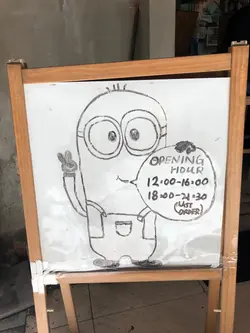 OPENING
HOUR
12:00-16:00
18:00-21:30
(LAST
ORDER)